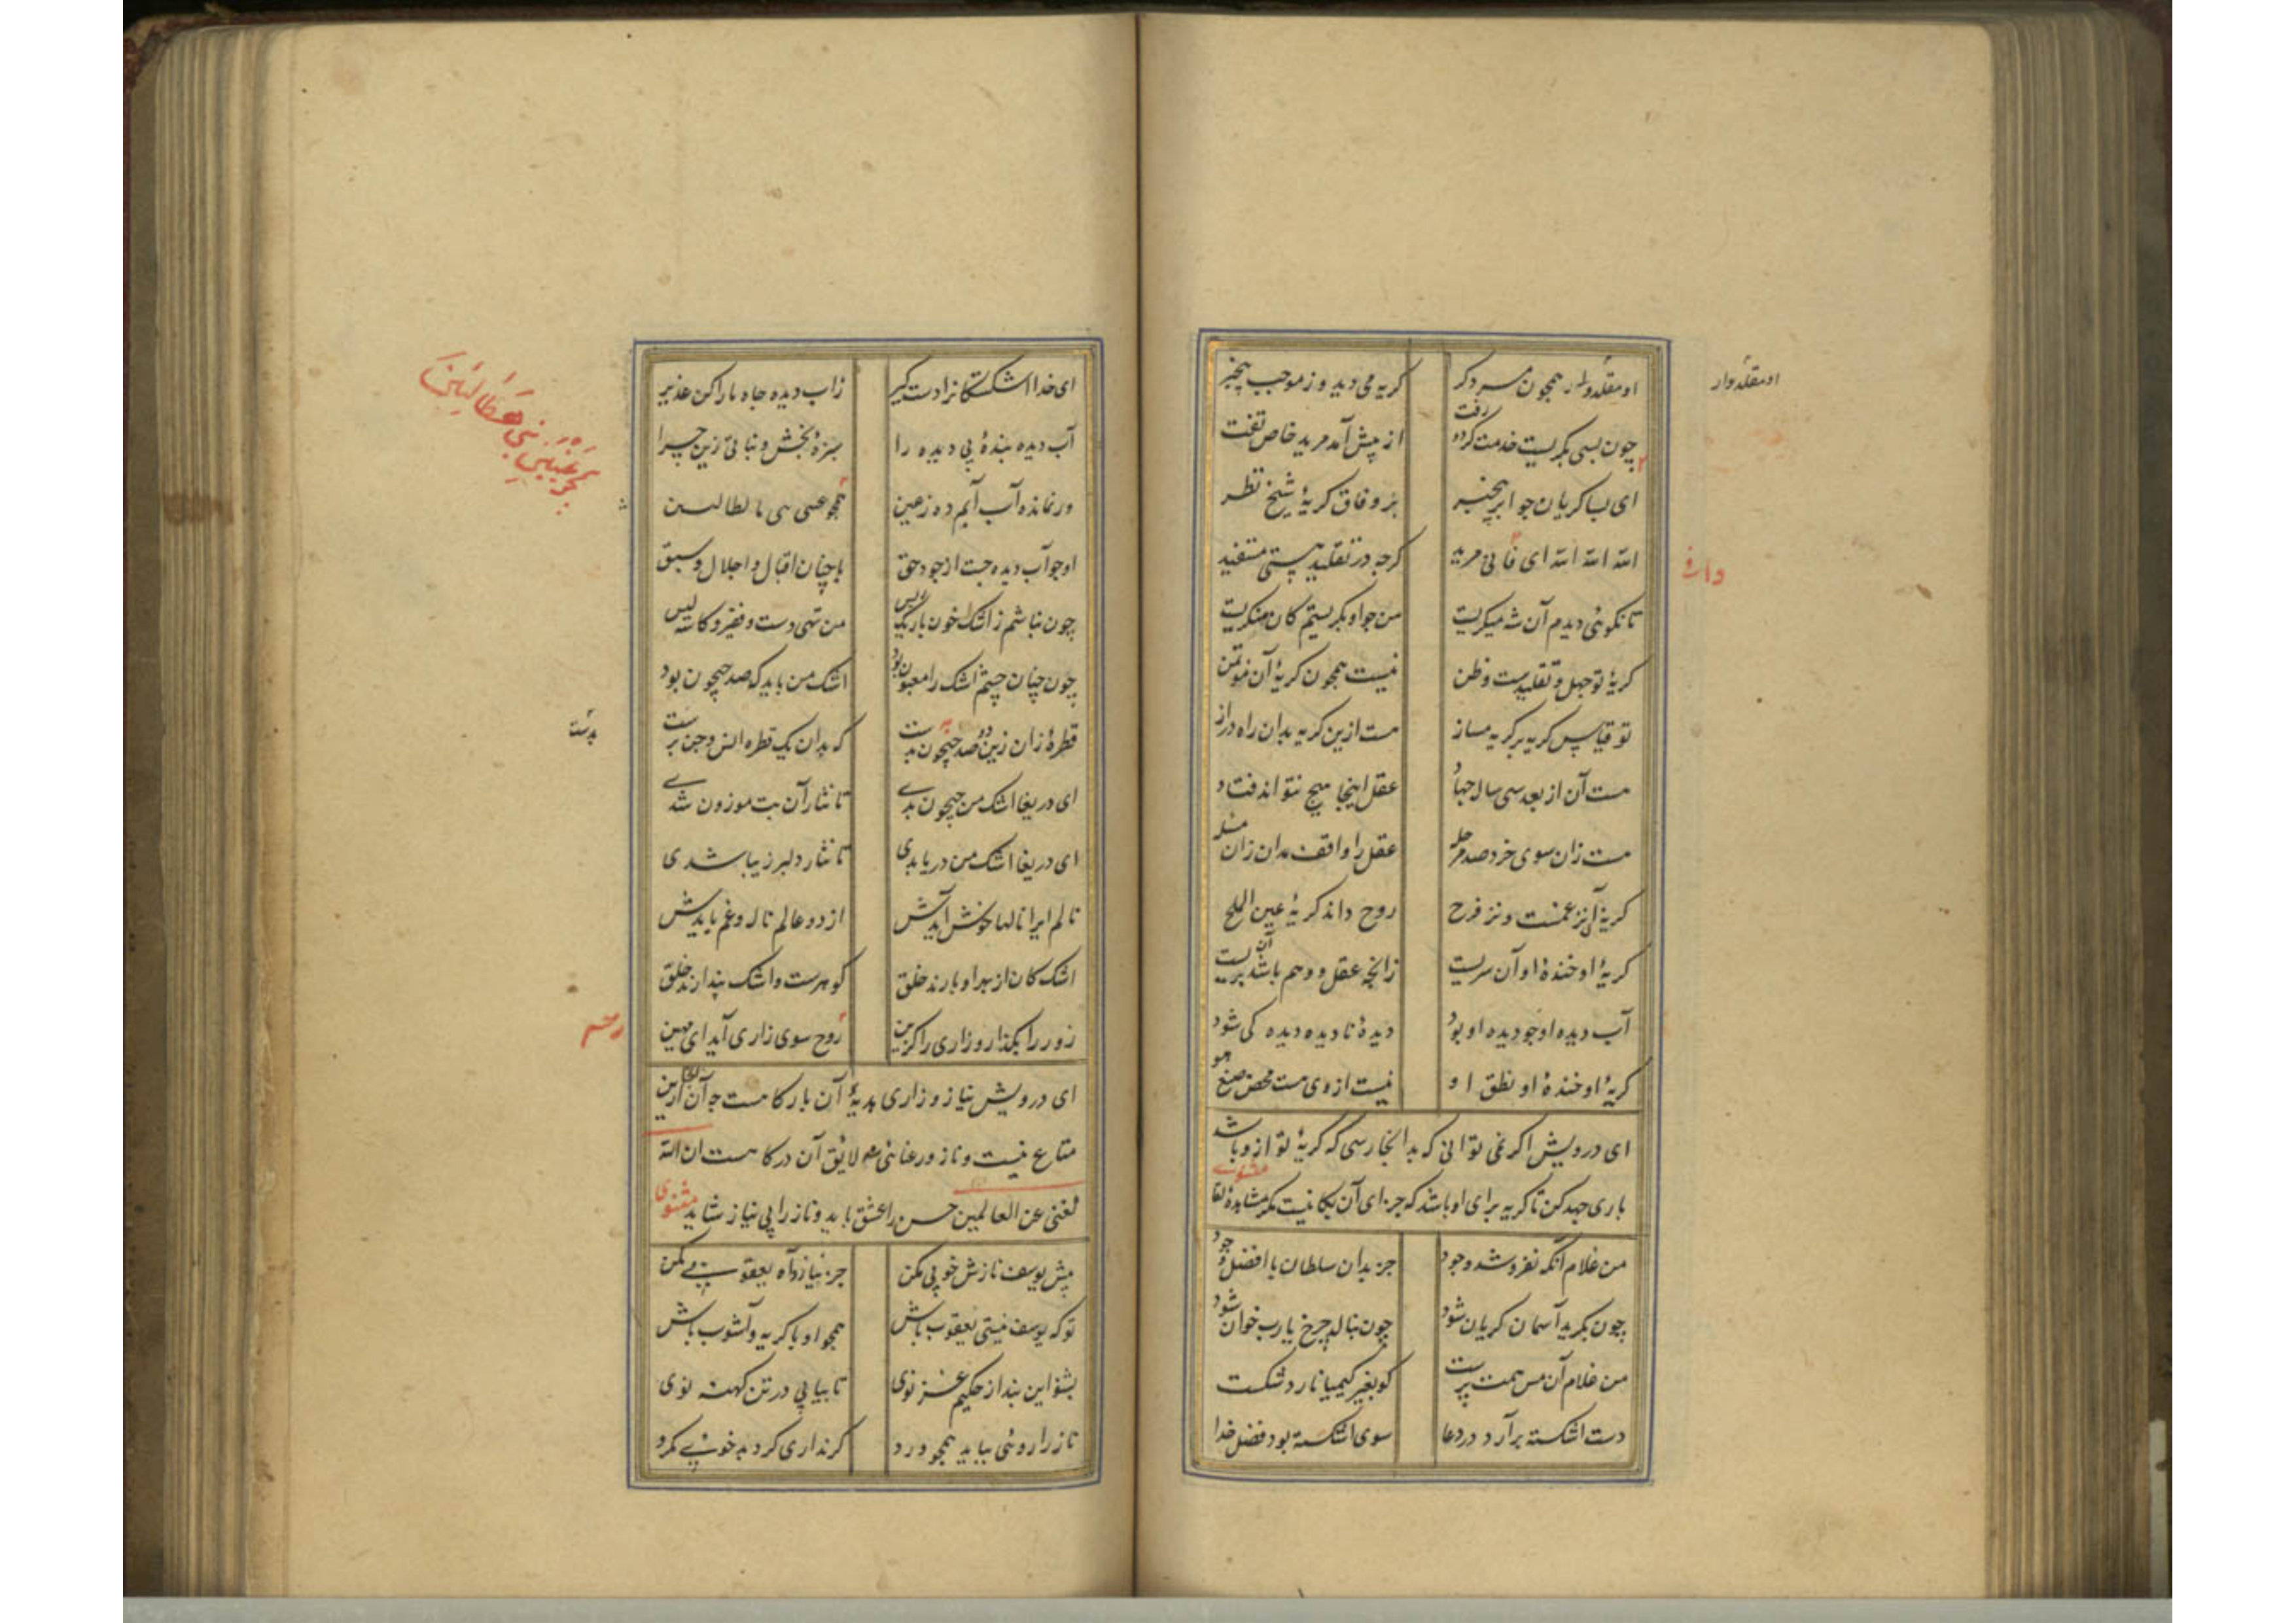 او مقلدوار همچون مرد کر گریه می دید و ز موجب بیخبر
او مقلدوار
چون بسی بگریست خدمت کرد و رفت از پیش آمد مرید خاص تفت
ای بسا گریان چو ابر بیخبر بر وفاق گریهٔ شیخ نظر
الله الله الله ای مرید گرچه در تقلید هستی مستفید
وافی
تا نگوئی دیدم آن شه میگریست من چو او بگریستم کان منکریست
گریهٔ تو جهل و تقلیدست و ظن نیست همچون گریهٔ آن مؤتمن
تو قیاس گریه بر گریه مساز هست ازین گریه بدان راه دراز
هست آن از بعد سی سال جهاد عقل اینجا هیچ نتواند فتاد
هست زان سوی خرد صد مرحله عقل را واقف مدان زان
گریهٔ او نز غمست و نز فرح روح داند گریهٔ عین الملح
گریهٔ او خندهٔ او آن سریست زانچه عقل و وهم باشد آن بریست
آب دیده او چو دیده او بود دیدهٔ نادیده دیده کی شود
گریهٔ او خندهٔ او نطق او نیست از وی هست محض صنع هو
ای درویش اگر نمی توانی که بدانجا رسی که گریهٔ تو ازو باشد
باری جهد کن تا گریه برای او باشد که جزای آن بکا نیست مگر مشاهدهٔ لقا مثنوی
من غلام آنکه نفروشد وجود جز بدان سلطان با افضل و جود
چون بگرید آسمان گریان شود چون بنالد چرخ یارب خوان شود
من غلام آن مس همت پرست کو بغیر کیمیا نارد شکست
دست اشکسته برآرد در دعا سوی اشکسته بود فضل خدا
ای خدا اشکستگانرا دست گیر زاب دیده جاه ما را کن غدیر
آب دیده بندهٔ بی دیده را سبزهٔ بخش و نباتی زین چرا
ور نمانده آب آبم ده ز عین همچو عینی نبی هطالتین
او چو آب دیده جست از جود حق با چنان اقبال و اجلال و سبق
چون نباشم ز اشک خون باریک ریس من تهی دست و فقیر و کاسه لیس
چون چنان چشم اشک را مفتون بود اشک من باید که صد جیحون بود
قطرهٔ زان زین دو صد جیحون بهست که بدان یک قطره انس و جن برست
ای دریغا اشک من جیحون بدی تا نثار آن بت موزون شدی
ای دریغا اشک من دریا بدی تا نثار دلبر زیبا شدی
نالم ایرا نالها خوش آیدش از دو عالم ناله و غم بایدش
اشک کان از بهر او بارند خلق گوهرست و اشک پندارند خلق
زور را بگذار و زاری را گزین رحم سوی زاری آید ای مهین
رحم
ای درویش نیاز و زاری هدیهٔ آن بارگاهست چه آنجا ازین
متاع نیست و ناز و رعنائی نه لایق آن درگاهست ان الله
لغنی عن العالمین حسن را عشق باید و ناز را بی نیاز شاید مثنوی
پیش یوسف نازش خوبی مکن جز نیاز و آه یعقوبی مکن
تو که یوسف نیستی یعقوب باش همچو او با گریه و آشوب باش
بشنو این پند از حکیم غزنوی تا بیابی در تن کهنه نوی
ناز را روئی بباید همچو ورد گر نداری گرد بدخوئی مگرد